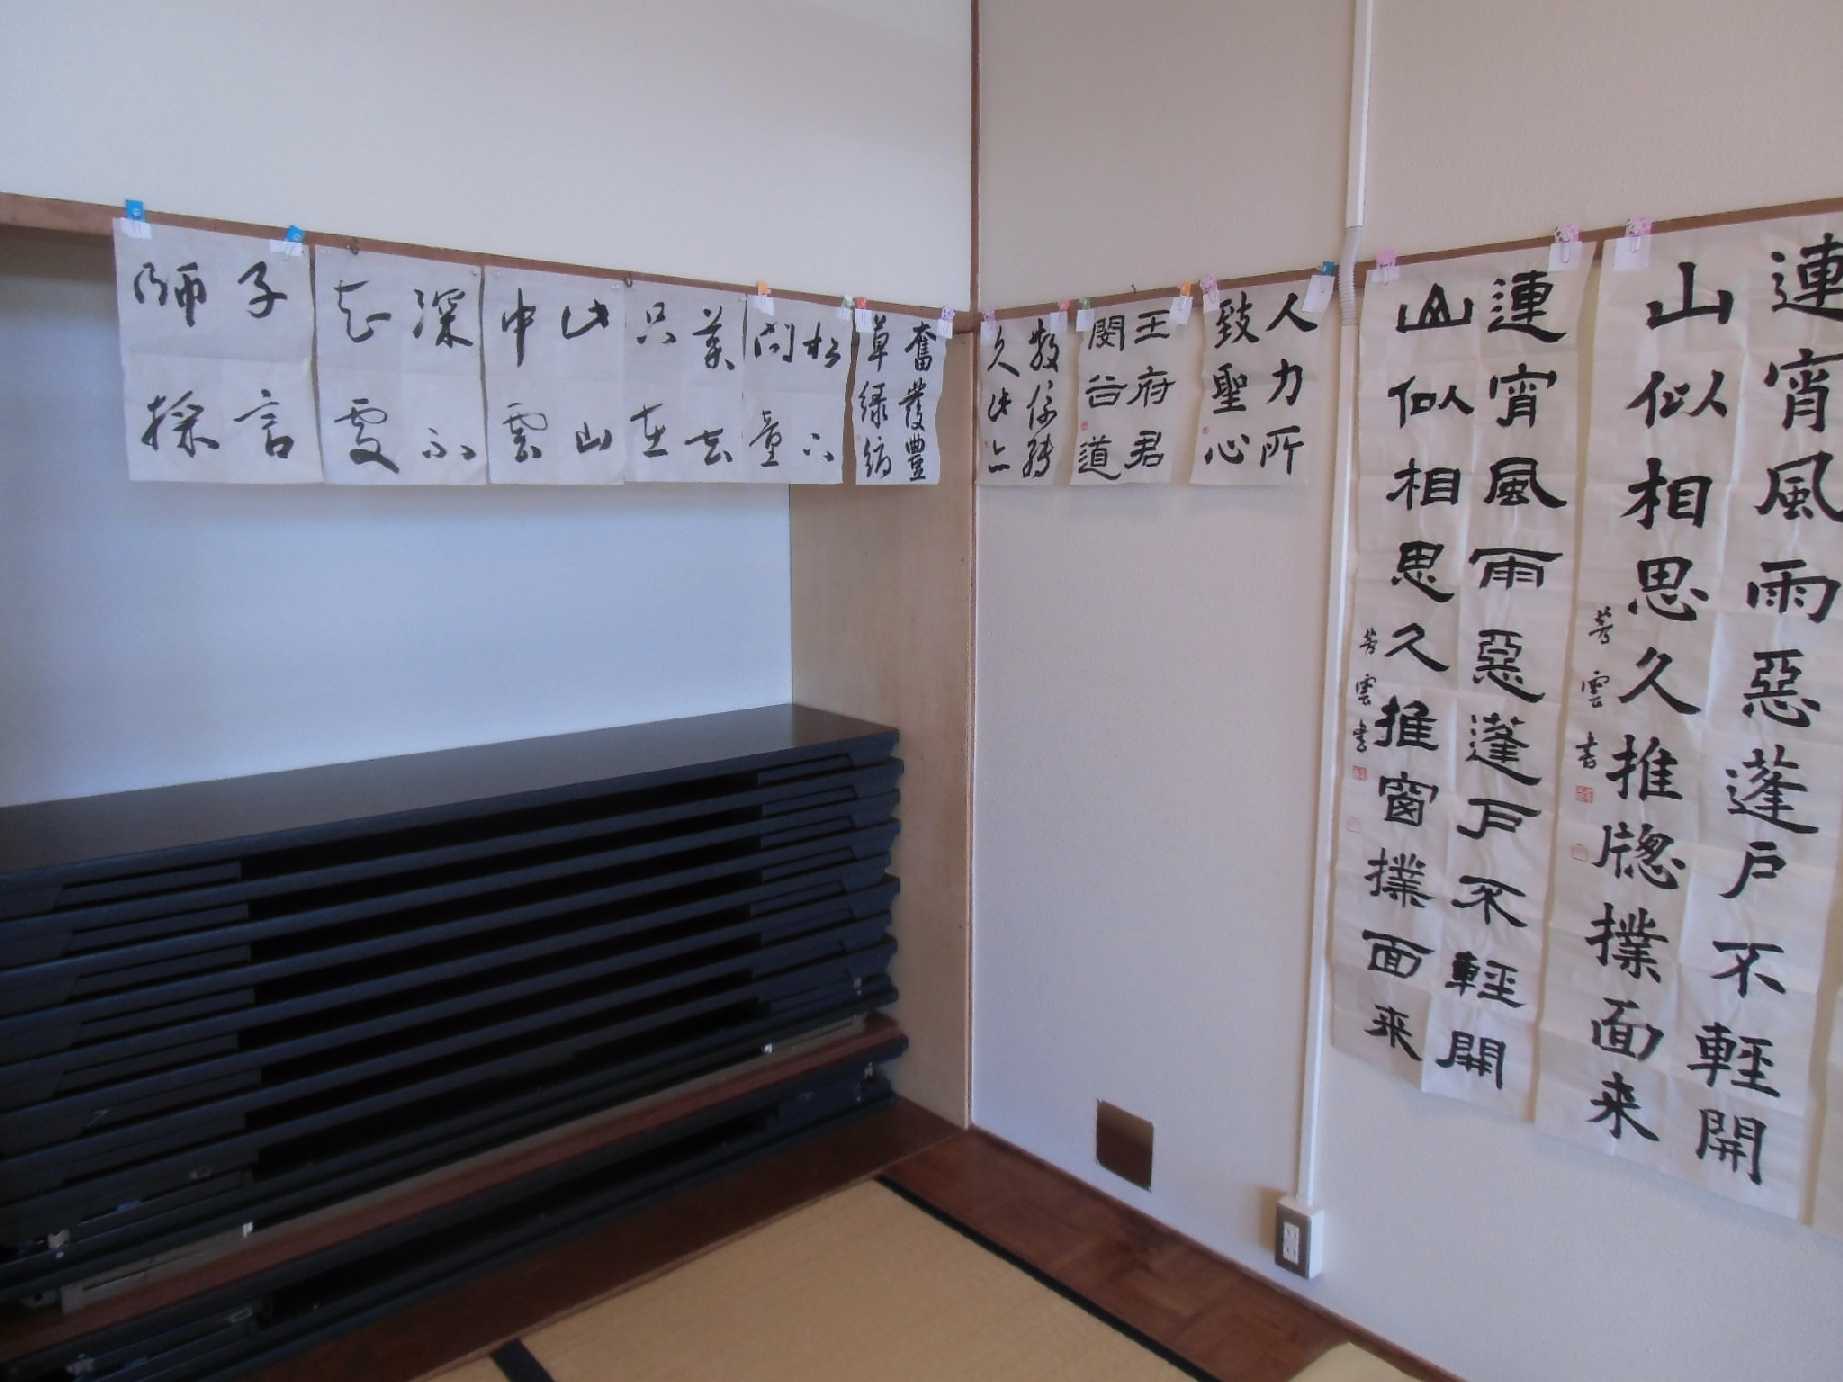 連宵風雨惡蓬戸不輕開
山似相思久推牕撲面来
芳雲書
連宵風雨惡蓬戸不輕開
山似相思久推窗撲面来
芳雲書
人力所
致聖心
王府君
閔谷道
奮發豐
草緑
松下
問童
藥去
只在
此山
中雲
深不
知處
子言
師採